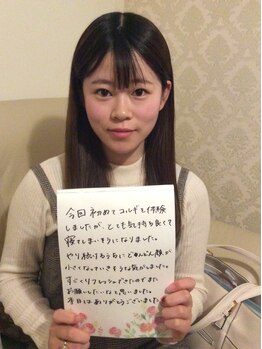 今回初めてコルギを体験
しましたが、とても気持ち良くて
寝てしまいそうになりました。
やり続けるうちにどんどん顔が
小さくなっていきそうな気がしました。
すごくリフレッシュできたのでまた
お願いしたいなと思いました。
本日はありがとうございました。